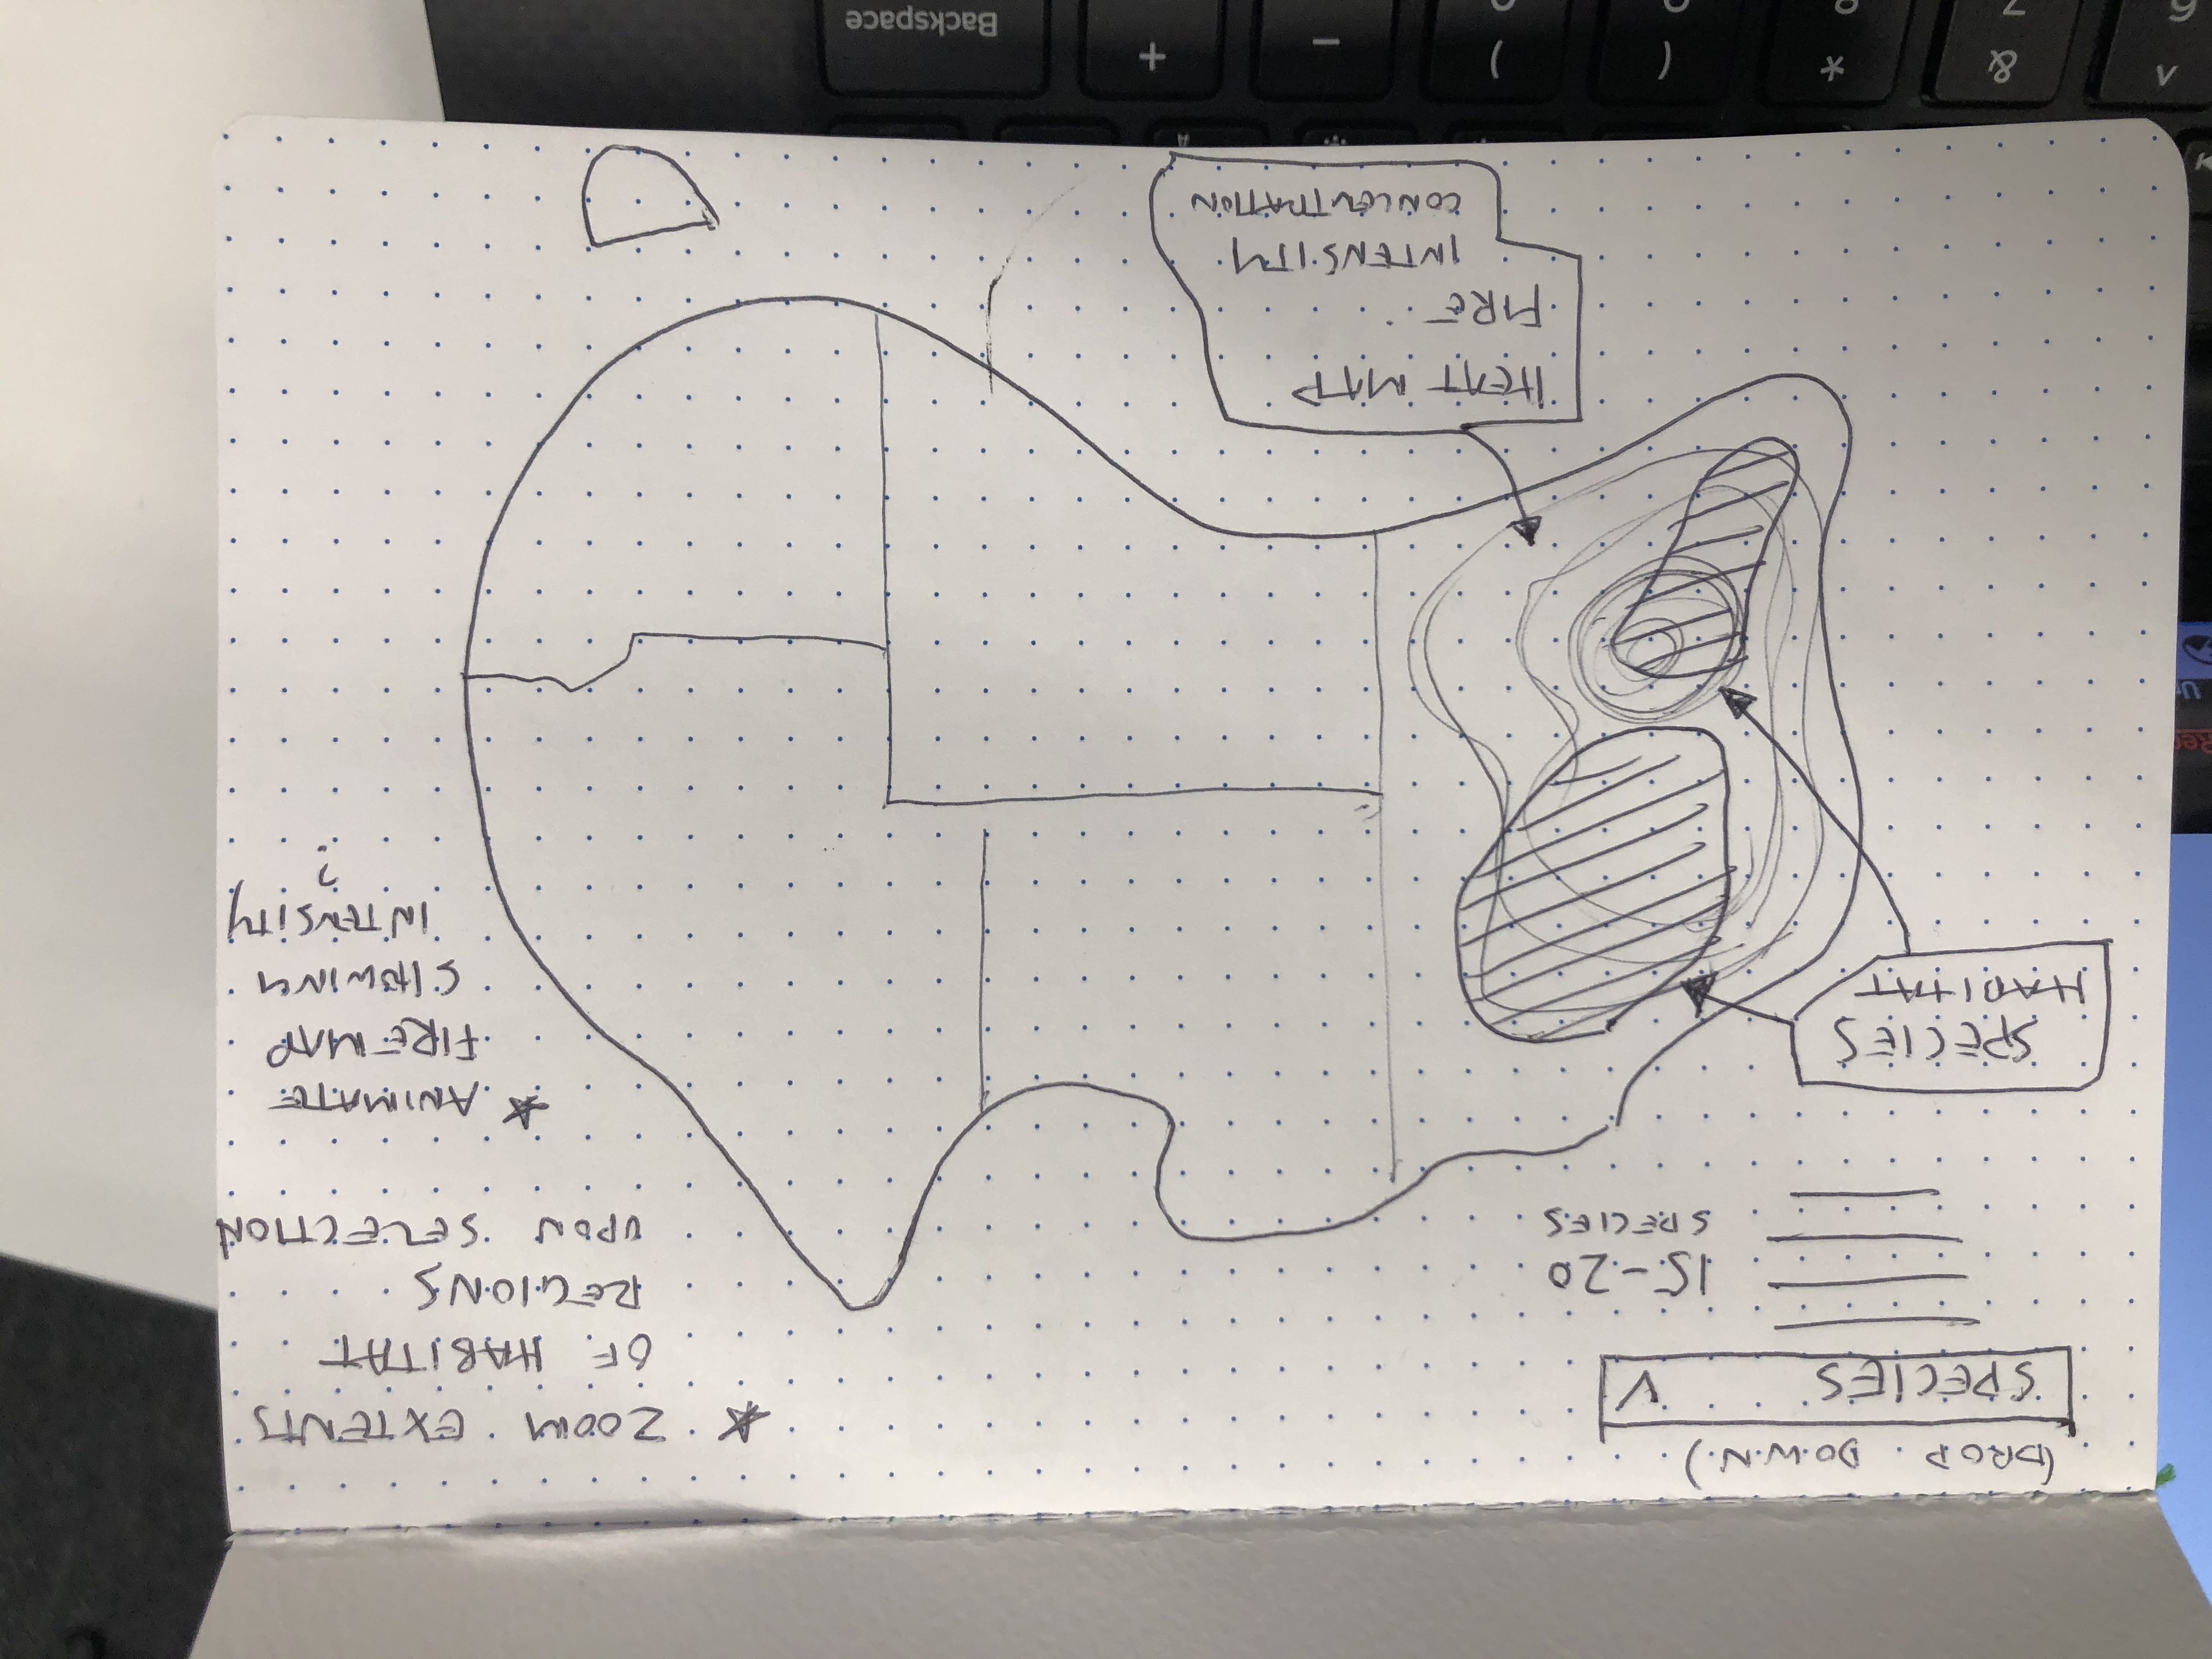 (DROP DOWN)
SPECIES
15-20
SPECIES
★ ZOOM EXTENTS
OF HABITAT
REGIONS
UPON SELECTION
★ ANIMATE
FIRE MAP
SHOWING
INTENSITY
?
SPECIES
HABITAT
HEAT MAP
FIRE
INTENSITY
CONCENTRATION
^ & * ( ) - +
6 7 8 9 0
Backspace